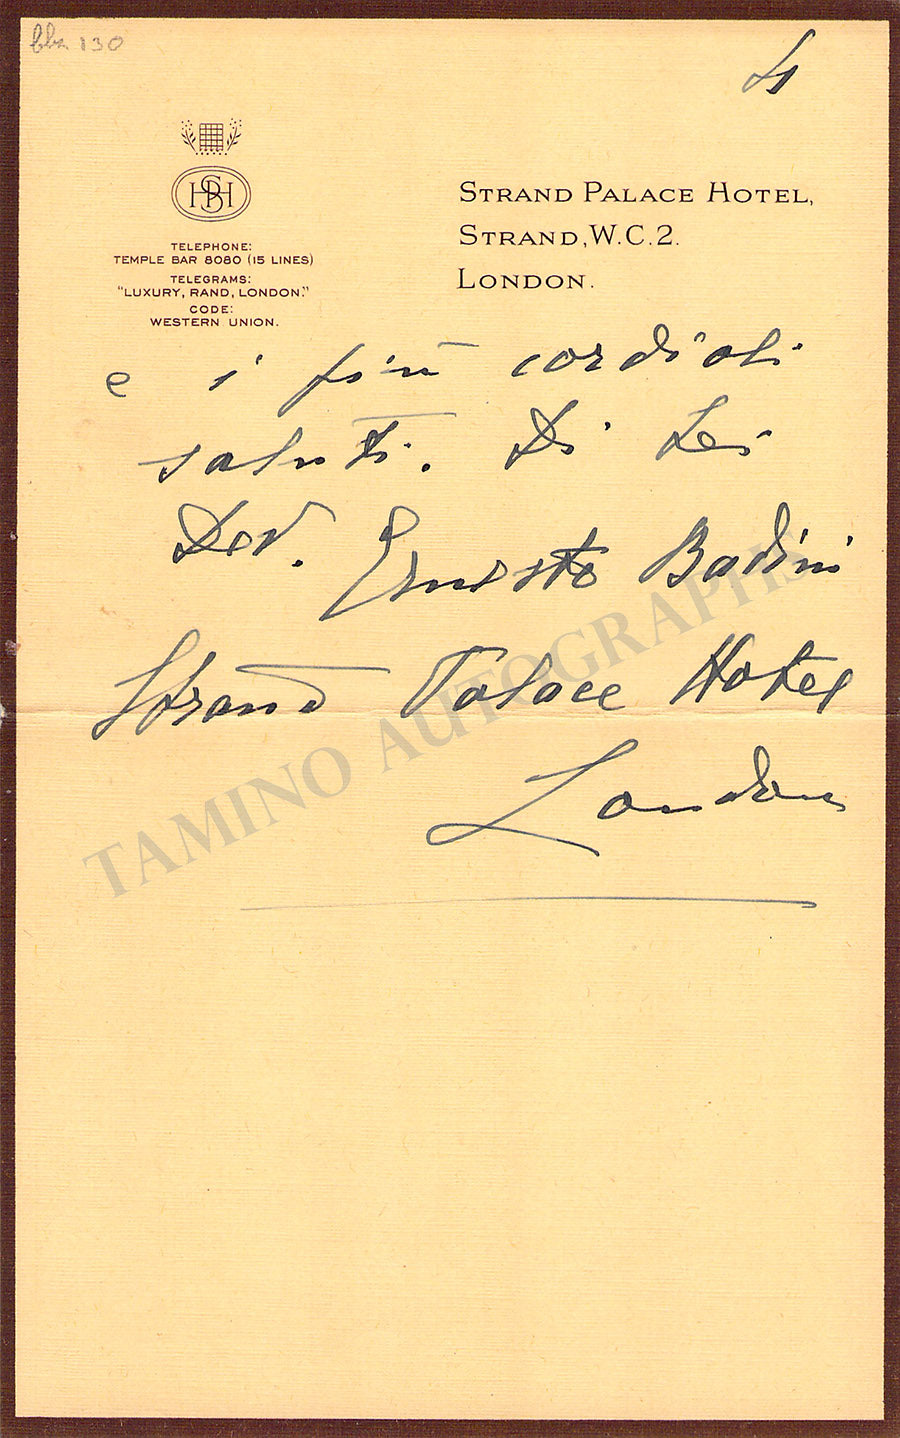 130
4
SBH
STRAND PALACE HOTEL,
STRAND, W.C.2.
LONDON.
TELEPHONE:
TEMPLE BAR 8080 (15 LINES)
TELEGRAMS:
"LUXURY, RAND, LONDON."
CODE:
WESTERN UNION.
e i più cordiali
saluti. Di Lei
Dev. Ernesto Badini
Strand Palace Hotel
London
TAMINO AUTOGRAPHS